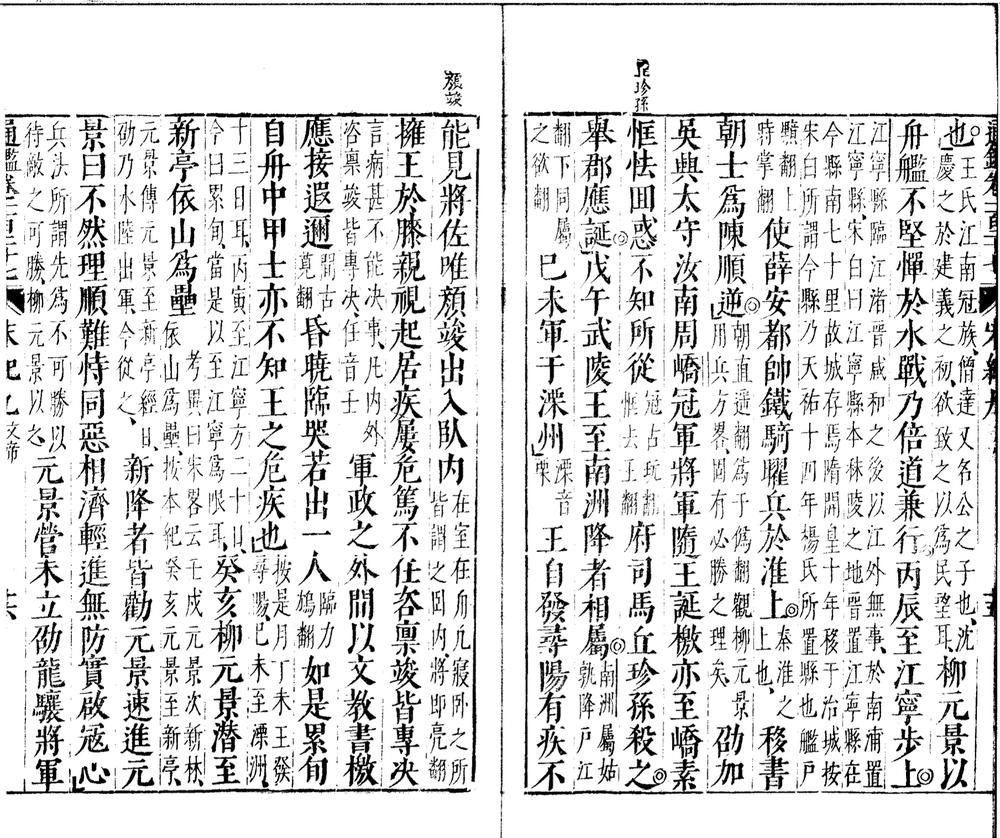 丘珍孫
也王氏江南冠族僧達又名公之子也沈
慶之於建義之初欲致之以爲民望耳柳元景以
舟艦不堅憚於水戰乃倍道兼行丙辰至江寧步上
江寧縣臨江渚晉咸和之後以江外無事於南浦置
江寧縣宋白曰江寧縣本秣陵之地晉置江寧縣在
今縣南七十里故城存焉隋開皇十年移于冶城按
宋白所謂今縣乃天祐十四年楊氏所置縣也艦戶
黯翻上
特掌翻使薛安都帥鐵騎曜兵於淮上秦淮之
上也移書
朝士爲陳順逆朝直遥翻爲于僞翻觀柳元景
用兵方畧固有必勝之理矣劭加
吳興太守汝南周嶠冠軍將軍隨王誕檄亦至嶠素
恇怯回惑不知所從冠古玩翻
恇去王翻府司馬丘珍孫殺之
舉郡應誕戊午武陵王至南洲降者相屬南洲屬姑
孰降戶江
翻下同屬
之欲翻己未軍于溧洲溧音
栗王自發尋陽有疾不
顏竣
能見將佐唯顏竣出入臥內在室在舟凡寢卧之所
皆謂之卧內將即亮翻
擁王於膝親視起居疾屢危篤不任咨禀竣皆專决
言病甚不能决事凡內外
咨禀竣皆專决任音壬軍政之外間以文教書檄
應接遐邇間古
莧翻昏曉臨哭若出一人臨力
鴆翻如是累旬
自舟中甲士亦不知王之危疾也按是月丁未王發
尋陽己未至溧洲
十三日耳丙寅至江寧方二十日
今曰累旬當是以至江寧爲限耳癸亥柳元景潛至
新亭依山爲壘考異曰宋畧云壬戌元景次新林
依山爲壘按本紀癸亥元景至新亭
元景傳元景至新亭經日
劭乃水陸出軍今從之新降者皆勸元景速進元
景曰不然理順難恃同惡相濟輕進無防實啟寇心
兵法所謂先爲不可勝以
待敵之可勝柳元景以之元景營未立劭龍驤將軍
通鑑卷一百二十七 宋紀九 文帝 十六